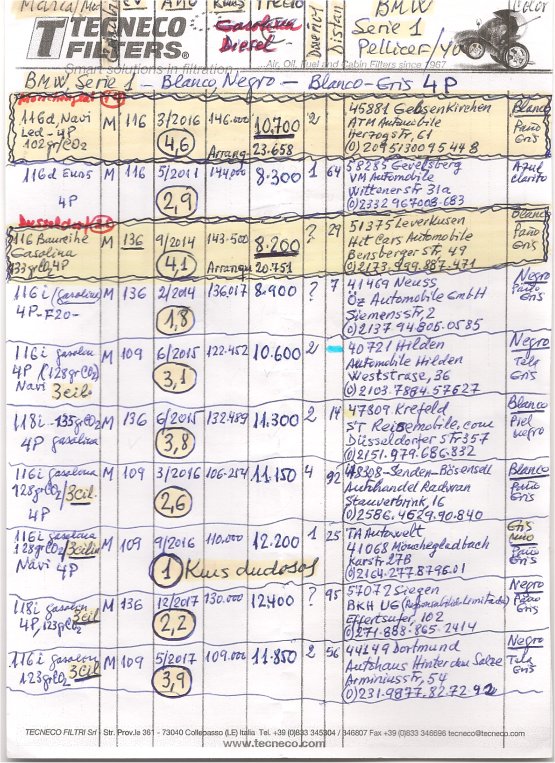 Marca/Mod
CV
Año
Kms
Precio
Dueños
Distan
BMW
Color
TECNECO
FILTERS®
Smart solutions in filtration
Gasolina
Diesel
Serie 1
Pellicer/Yo
Air, Oil, Fuel and Cabin Filters since 1967
BMW, Serie 1 - Blanco, Negro - Blanco-Gris 4P
116d, Navi M 116 3/2016 146.000 10.700 2 45881 Gelsenkirchen Blanco
Led - 4P ATM Automobile Paño
102gr/CO2 4,6 Herzogstr, 61 Gris
Arranq 23.658 (0)
116d Euro5 M 116 5/2011 144.000 8.300 1 64 58285 Gevelsberg Azul
VM Automobile clarito
4P 2,9 Wittenerstr 31a
(0)2332 967008-683
Dusseldorf
116 Baureihe M 136 9/2014 143-500 8.200 ? 29 51375 Leverkusen Blanco
Gasolina Het Cars Automobile Paño
4P 4,1 Bensberger str, 49 Gris
Arranqu 20.751 (0)2173.999.887.471
116i (gasolina) M 136 2/2014 136.017 8.900 ? 7 41469 Neuss Negro
4P-F20- Öz Automobile GmbH Paño
1,8 Siemensstr, 2 Gris
(0)2137 94806-0585
116i gasolina M 109 6/2015 122.452 10.600 2 40721 Hilden Negro
4P (128grCO2) Automobile Hilden Tela
Navi 3cil 3,1 Weststrase, 36 Gris
(0)2103.7884.57627
118i -135grCO2 M 136 6/2015 132.489 11.300 2 14 47809 Krefeld Blanco
4P gasolina ST Reisemobile.com Piel
3,8 Düsseldorfer str 357 negro
(0)2151.979.686.832
116i gasolina M 109 3/2016 106-254 11.150 4 92 48308-Senden-Bösensell Blanco
128grCO2/3cil. Autohandel Radwan Paño
4P 2,6 Stauverbrink, 16 Gris
(0)2586.4629.90.840
116i gasolina M 109 9/2016 110.000 12.200 1 25 TA Autowelt Gris
128grCO2/3cilin 41068 Mönchegladbach Paño
Navi 4P 1 Kms dudosos Karstr. 27B Gris
(0)2164-277.8796.01
118i gasolin M 136 12/2017 130.000 12400 ? 95 57072 Siegen Negro
3cil BKH UG (Responsabilidad Limitada) Paño
4P, 123grCO2 2,2 Effertsufer, 102 Gris
(0)271-888-865-2414
116i gasolina M 109 5/2017 109.000 11.850 2 56 44149 Dortmund Negro
123grCO2 3cil Autohaus Hinter den Salze Tela
3,9 Arminiusstr, 54 Gris
(0)231.9877.82.72.92
TECNECO FILTRI Srl - Str. Prov.le 361 - 73040 Collepasso (LE) Italia Tel. +39 (0)833 345304 / 346807 Fax +39 (0)833 346696 tecneco@tecneco.com
www.tecneco.com